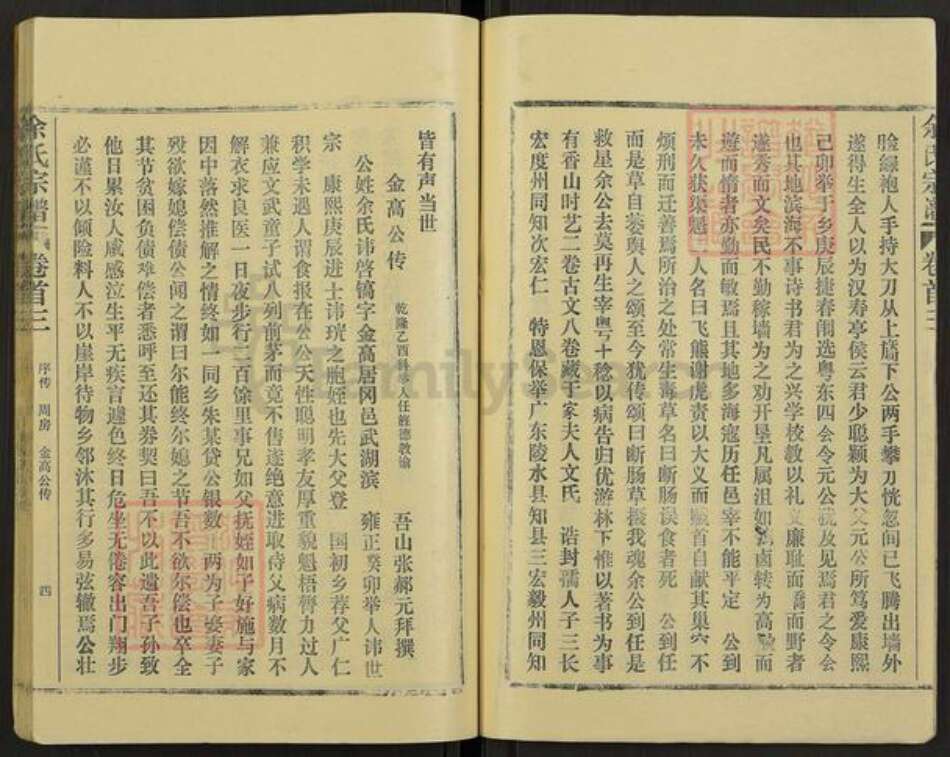 脸绿袍人手持大刀从上墙下公两手攀刀恍忽间已飞腾出墙外
遂得生全人以为汉寿亭侯云君少聪颖为大父元公所笃爱康熙
己卯举于乡庚辰捷春闱选粤东四会令元公犹及见焉君之令会
也其地滨海不事诗书君为之兴学校教以礼文廉耻而骄而野者
遂秀而文矣民不勤稼墙为之劝开垦凡属沮如舄卤转为高敞而
遊而惰者亦勤而敏焉且其地多海寇历任邑宰不能平定 公到
未久获渠魁 人名曰飞熊谢虎责以大义而贼首自献其巢穴不
烦刑而迁善焉所治之处常生毒草名曰断肠误食者死 公到任
而是草自萎舆人之颂至今犹传颂曰断肠草摄我魂余公到任是
救星余公去莫再生宰粤十稔以病告归优游林下惟以著书为事
有香山时艺二卷古文八卷藏于家夫人文氏 诰封孺人子三长
宏度州同知次宏仁 特恩保举广东陵水县知县三宏毅州同知
余氏宗谱 卷首三
皆有声当世
金高公传 乾隆乙酉科举人任旌德教谕 吾山张郝元拜撰
公姓余氏讳啓镐字金高居冈邑武湖滨 雍正癸卯举人讳世
宗 康熙庚辰进士讳珖之胞姪也先大父登 国初乡荐父广仁
积学未遇人谓食报在公公天性聪明孝友厚重貌魁梧膂力过人
兼应文武童子试八列前茅而竟不售遂绝意进取侍父病数月不
解衣求良医一日夜步行二百馀里事兄如父抚姪如子好施与家
因中落然推解之情终如一同乡朱某贷公银数 两为子娶妻子
殁欲嫁媳偿债公闻之谓曰尔能终尔媳之节吾不欲尔偿也卒全
其节贫困负债难偿者悉呼至还其券契曰吾不以此遗吾子孙致
他日累汝人咸感泣生平无疾言遽色终日危坐无倦容出门翔步
必谨不以倾险料人不以崖岸待物乡邻沐其行多易弦辙焉公壮
余氏宗谱 卷首三 序传 周房 金高公传 四